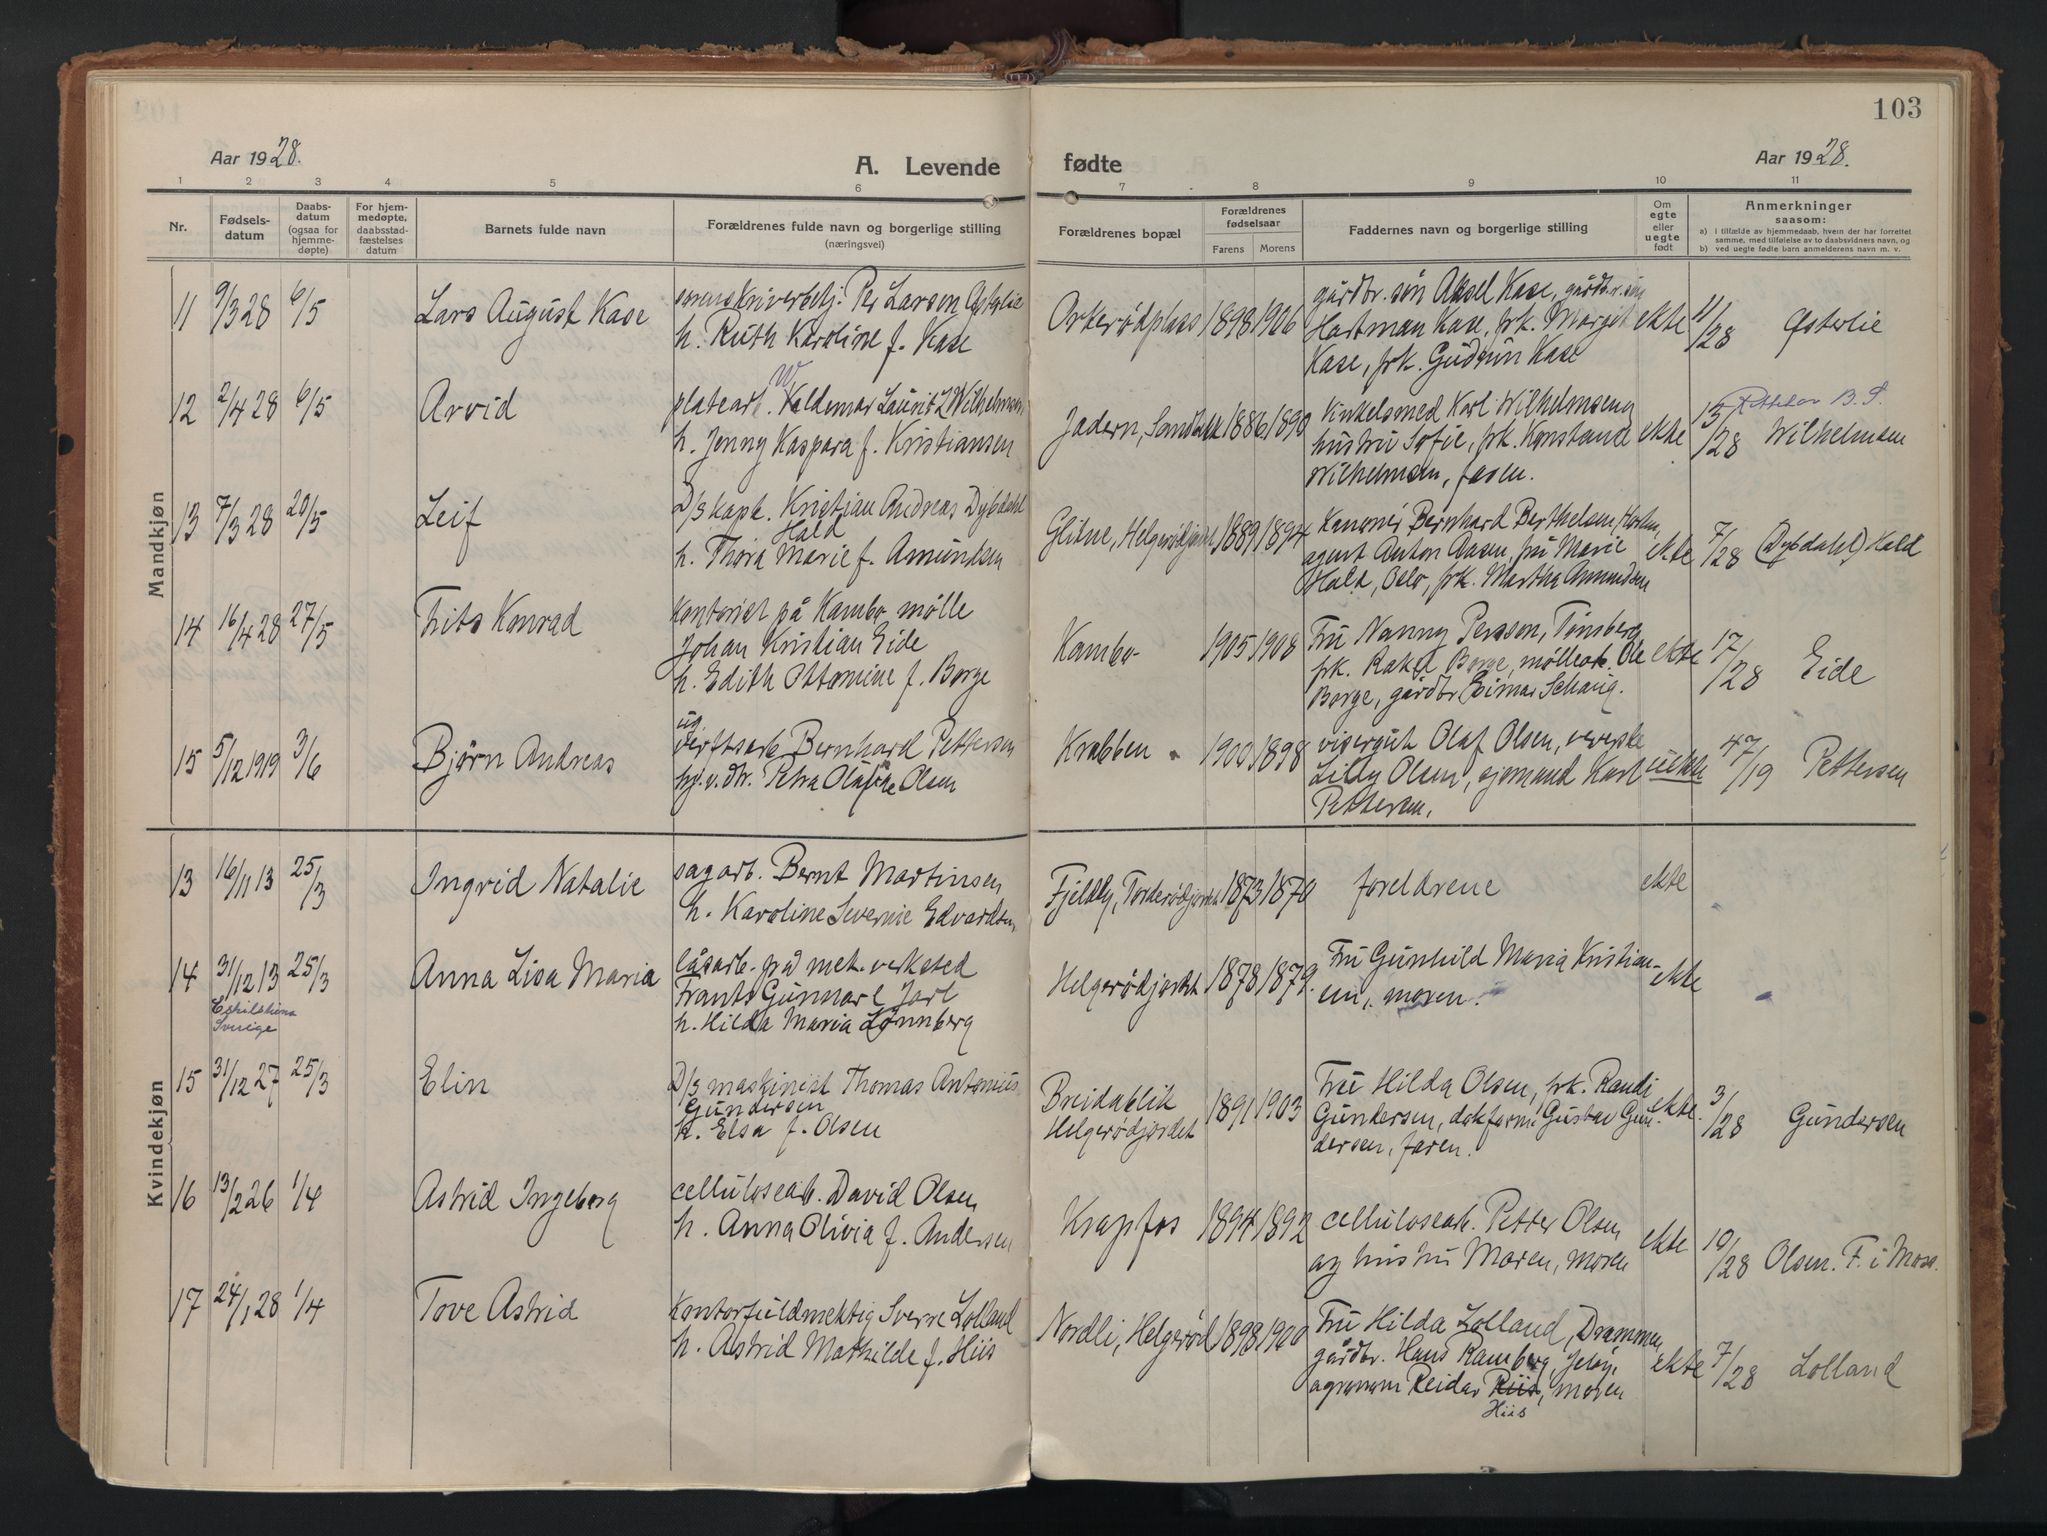 103
Aar 1928.
A. Levende
fødte
Aar 1928.
1 2 3 4 5 6 7 8 9 10 11
Nr.
Fødsels-
datum
Daabs-
datum
(ogsaa for
hjemme-
døpte)
For hjem-
medøpte,
daabsstad-
fæstelses
datum
Barnets fulde navn
Forældrenes fulde navn og borgerlige stilling
(næringsvei)
Forældrenes bopæl
Forældrenes
fødselsaar
Farens Morens
Faddernes navn og borgerlige stilling
Om
egte
eller
uegte
født
Anmerkninger
saasom:
a) i tilfælde av hjemmedaab, hvem der har forrettet
samme, med tilføielse av to daabsvidners navn, og
b) ved uegte fødte barn anmelderens navn m. v.
Mandkjøn
11 9/3 28 6/5 Lars August Kase
sorenskriverbetj. Per Larsen Østerlie
h. Ruth Karoline f. Kase
Orkerødplass 1898 1906
gårdbr. søn Aksel Kase, gårdbr. søn
Hartman Kase, frk. Margit
Kase, frk. Gudrun Kase
ekte 11/28 Østerlie
12 2/4 28 6/5 Arvid
platearb. Valdemar Lauritz Wilhelmsen
W
h. Jenny Kaspara f. Kristiansen
Jadern, Sandbakk 1886 1890
Kinkelsmed Karl Wilhelmsen og
hustru Sofie, frk. Konstanse
Wilhelmsen, faren.
ekte 15/28 Wilhelmsen
13 7/3 28 20/5 Leif
D/s kapt. Kristian Andreas Dybdahl
Hald
h. Thora Marie f. Amundsen
Glitne, Helgerødjordet 1889 1894
Kanonér Bernhard Berthelsen, Horten,
agent Anton Aasen, fru Marie
Hald, Oslo, frk. Martha Amundsen
ekte 7/28 (Dybdahl) Hald
14 16/4 28 27/5 Frits Konrad
Kontorist på Kambo mølle
Johan Kristian Eide
h. Edith Ottomine f. Borge
Kambo 1905 1908
Fru Nanny Persson, Tønsberg,
frk. Rakel Borge, møllearb. Ole
Borge, gårdbr Einar Schaug.
ekte 17/28 Eide
15 5/12 1919 3/6 Bjørn Andreas
ug.
verftsarb Bernhard Pettersen
og v. dtr. Petra Olafine Olsen
Krabben 1900 1898
visergut Olaf Olsen, veverske
Lilly Olsen, sjømand Karl
Pettersen.
uekte 47/19 Pettersen
Kvindekjøn
13 16/11 13 25/3 Ingrid Natalie
sagarb. Bernt Martinsen
h. Karoline Severine Edvardsen
Fjeldly, Torderødjordet 1873 1870
foreldrene
ekte
14 31/12 13 25/3 Anna Lisa Maria
Eskilstuna
Sverige
låsarb. på mek. verksted
Frants Gunnar E Jarl
h. Hilda Maria Lønnberg
Helgerødjordet 1878 1879.
Fru Gunhild Maria Kristian-
sen, moren.
ekte
15 31/12 27 25/3 Elin
D/s maskinist Thomas Antonius
Gundersen
h. Elsa f. Olsen
Breidablik
Helgerødjordet
1891 1903
Fru Hilda Olsen, frk. Randi
Gundersen, dekksform. Gustav Gun-
dersen, faren.
ekte. 3/28 Gundersen
16 13/2 26 1/4 Astrid Ingeborg
cellulosearb. David Olsen
h. Anna Olivia f. Andersen
Krapfos 1894 1892
cellulosearb. Petter Olsen
og hustru Maren, moren
ekte 10/28 Olsen. F. i Moss.
17 24/1 28 1/4 Tove Astrid
Kontorfuldmektig Sverre Lolland
h. Astrid Mathilde f. Hiis
Nordli, Helgerød 1898 1900
Fru Hilda Lolland, Drammen,
gårdbr. Hans Ramberg, Jeløy,
agronom Reidar Riis, moren
Hiis
ekte 7/28 Lolland